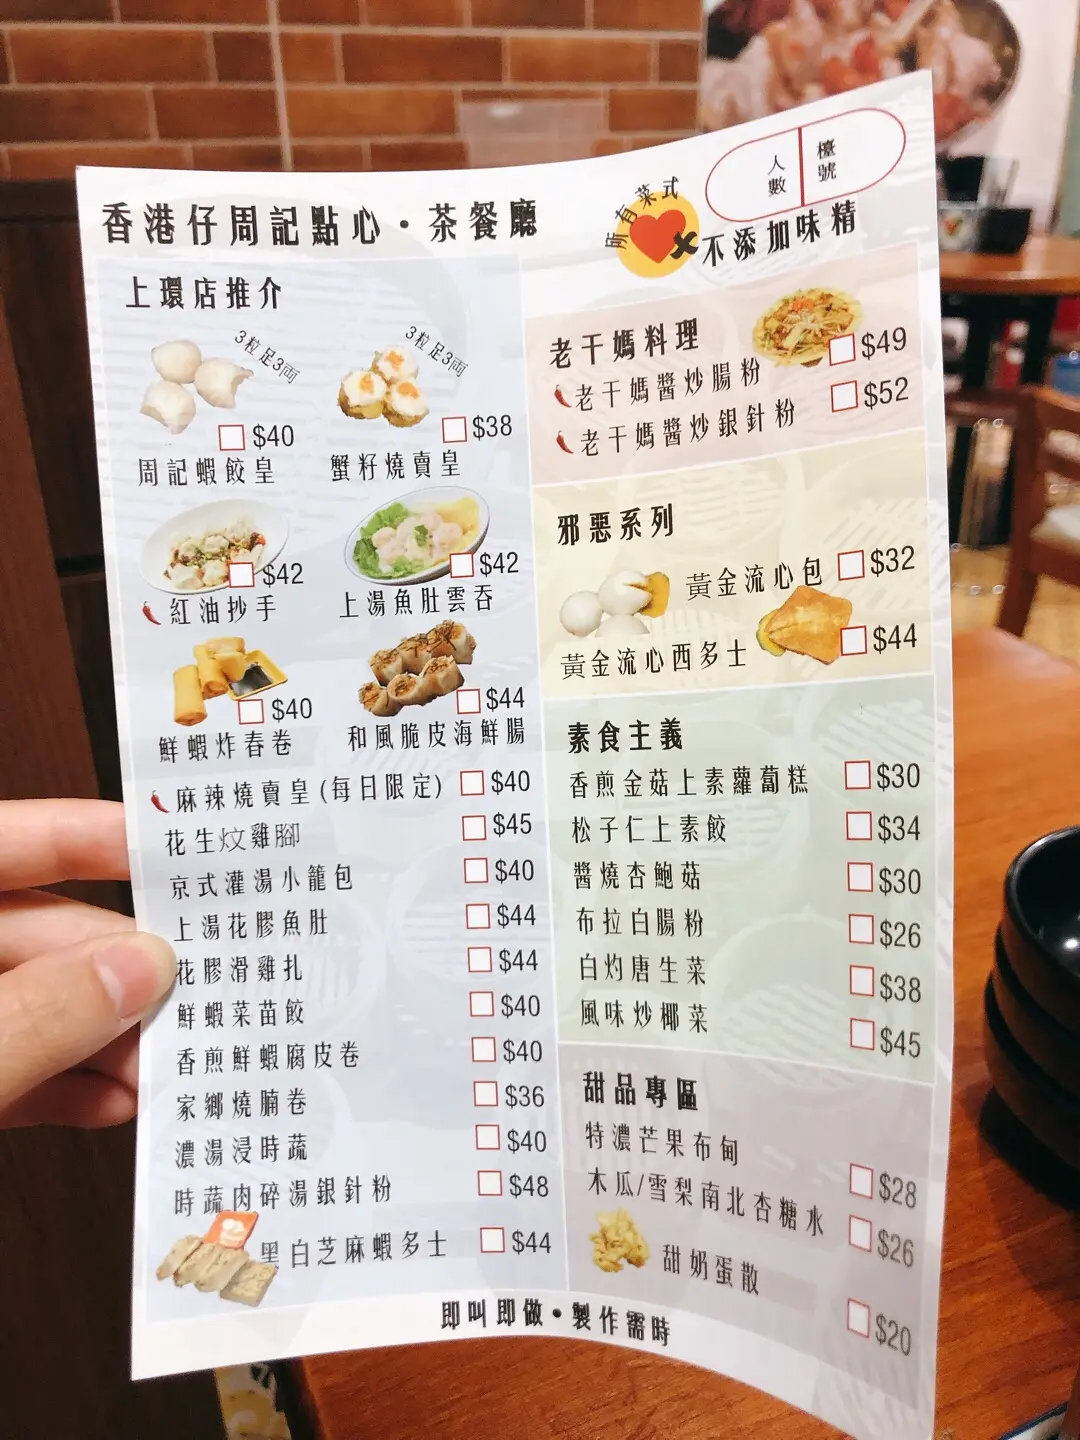 香港仔周記點心・茶餐廳
人數 檯號
所有菜式
不添加味精
上環店推介
3粒足3両
3粒足3両
$40
$38
周記蝦餃皇
蟹籽燒賣皇
$42
$42
紅油抄手
上湯魚肚雲吞
$40
$44
鮮蝦炸春卷
和風脆皮海鮮腸
麻辣燒賣皇(每日限定) $40
花生炆雞腳 $45
京式灌湯小籠包 $40
上湯花膠魚肚 $44
花膠滑雞扎 $44
鮮蝦菜苗餃 $40
香煎鮮蝦腐皮卷 $40
家鄉燒腩卷 $36
濃湯浸時蔬 $40
時蔬肉碎湯銀針粉 $48
黑白芝麻蝦多士 $44
老干媽料理
老干媽醬炒腸粉 $49
老干媽醬炒銀針粉 $52
邪惡系列
黃金流心包 $32
黃金流心西多士 $44
素食主義
香煎金菇上素蘿蔔糕 $30
松子仁上素餃 $34
醬燒杏鮑菇 $30
布拉白腸粉 $26
白灼唐生菜 $38
風味炒椰菜 $45
甜品專區
特濃芒果布甸 $28
木瓜/雪梨南北杏糖水 $26
甜奶蛋散 $20
即叫即做・製作需時